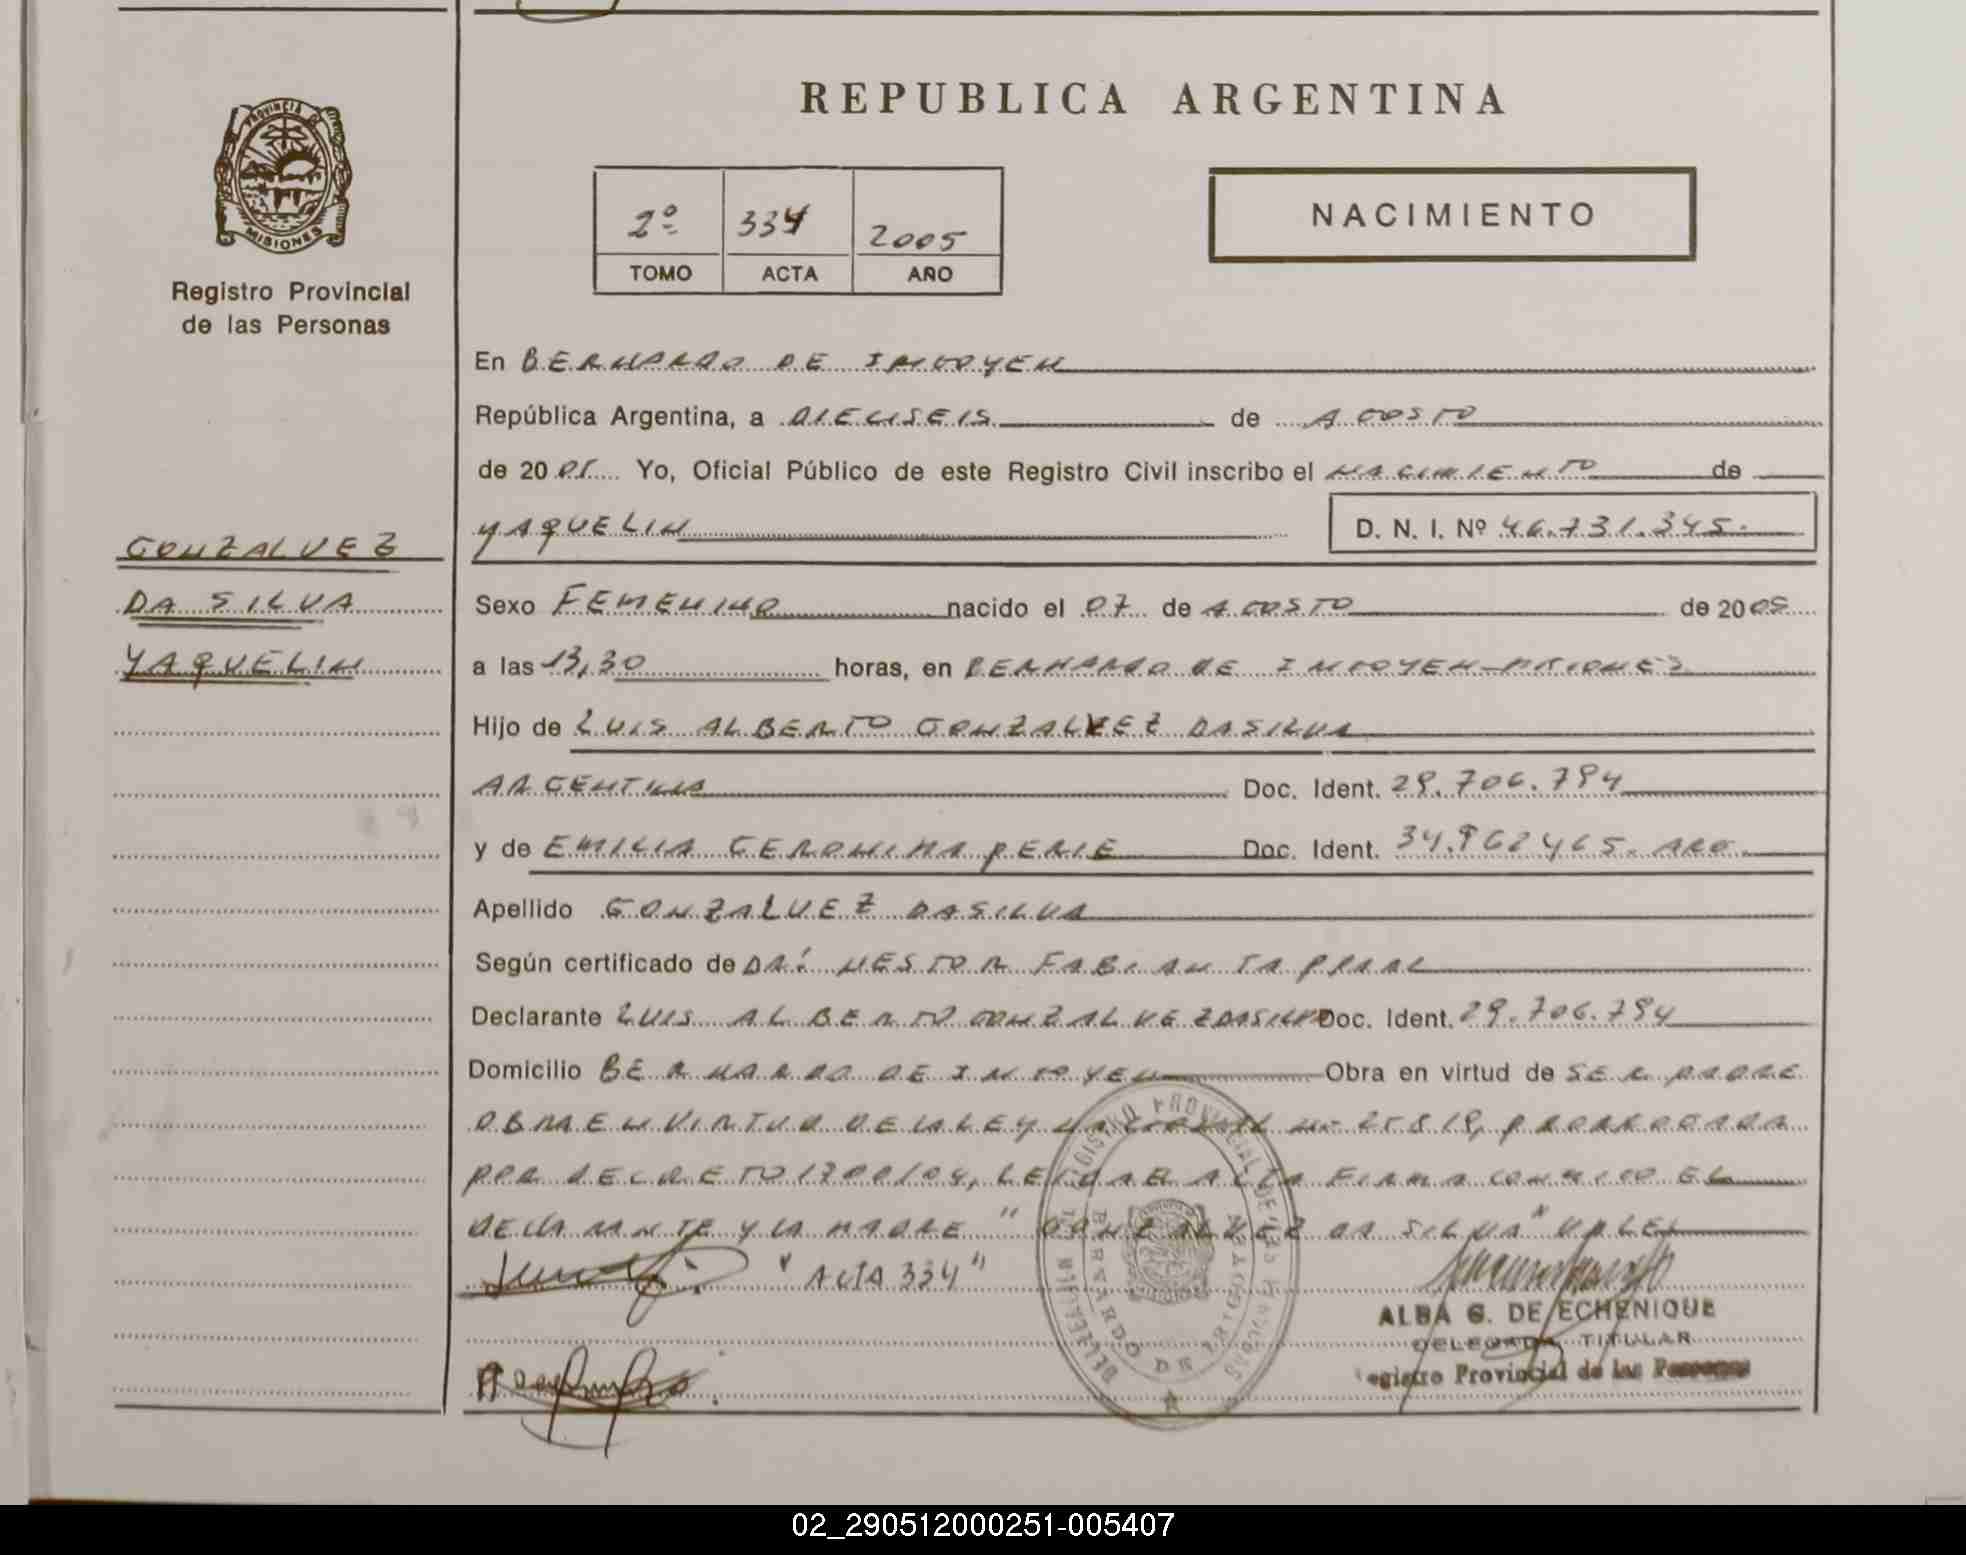 REPUBLICA ARGENTINA
PROVINCIA DE
MISIONES
Registro Provincial
de las Personas
2º 334 2005
TOMO ACTA AÑO
NACIMIENTO
En BERNARDO DE IRIGOYEN
República Argentina, a DIECISEIS de AGOSTO
de 2005 Yo, Oficial Público de este Registro Civil inscribo el NACIMIENTO de
YAQUELIN D. N. I. Nº 46.731.345.
GONZALVEZ
DA SILVA
YAQUELIN
Sexo FEMENINO nacido el 07 de AGOSTO de 2005
a las 13,30 horas, en BERNARDO DE IRIGOYEN-MISIONES
Hijo de LUIS ALBERTO GONZALVEZ DASILVA
ARGENTINA Doc. Ident. 29.706.794
y de EMILIA GERONIMA PERIE Doc. Ident. 34.962465. ARG.
Apellido GONZALVEZ DASILVA
Según certificado de DR: NESTOR FABIAN
Declarante LUIS ALBERTO GONZALVEZ DASILVA Doc. Ident. 29.706.794
Domicilio BERNARDO DE IRIGOYEN Obra en virtud de SER PADRE
OBRA EN VIRTUD DE LA LEY NACIONAL Nº 25819, PRORROGADA
POR DECRETO 1700/04, LEIDA EL ACTA FIRMA CONMIGO EL
DECLARANTE Y LA MADRE "GONZALVEZ DA SILVA" VALE
"ACTA 334"
REGISTRO PROVINCIAL DE LAS PERSONAS
BERNARDO DE IRIGOYEN
ALBA G. DE ECHENIQUE
DELEGADA TITULAR
egistro Provincial de las Personas
02_290512000251-005407